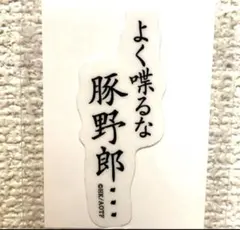 よく喋るな
豚野郎…
©HK/AOTP